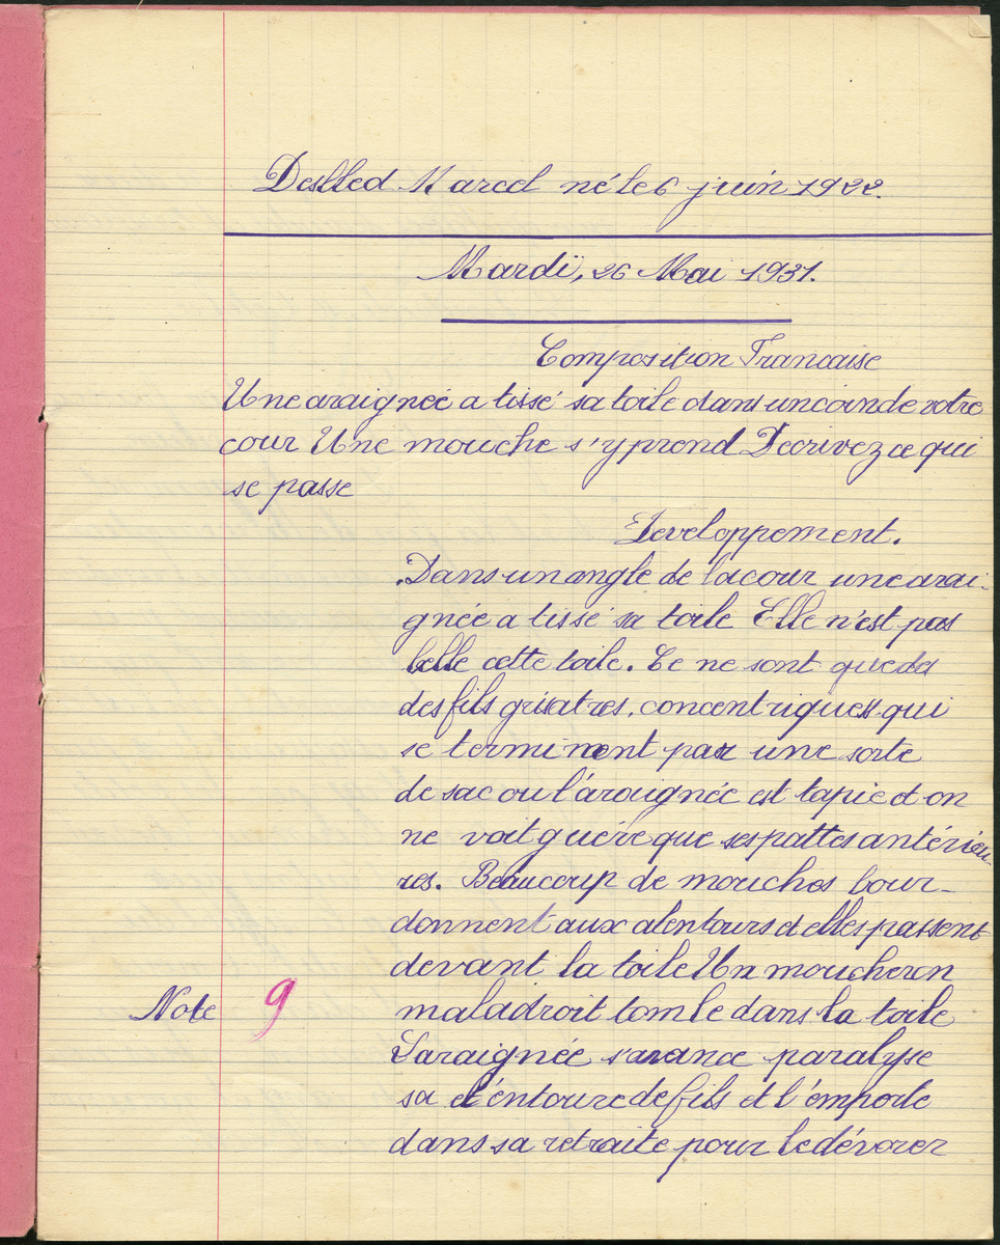 Deslled Marcel né le 6 juin 1922.
Mardi, 26 Mai 1931.
Composition Francaise
Une araignée a tissé sa toile dans un coin de votre
cour Une mouche s'y prend Decrivez ce qui
se passe
Developpement.
Dans un angle de la cour une arai-
gnée a tissé sa toile Elle n'est pas
belle cette toile. Ce ne sont que des
des fils grisatres, concentriques qui
se terminent par une sorte
de sac ou l'araignée est tapie et on
ne voit guére que ses pattes antérieu-
res. Beaucoup de mouches bour-
donnent aux alentours et elles passent
devant la toile Un moucheron
maladroit tombe dans la toile
L'araignée s'avance paralyse
sa et l'entoure de fils et l'emporte
dans sa retraite pour le dévorer
Note 9